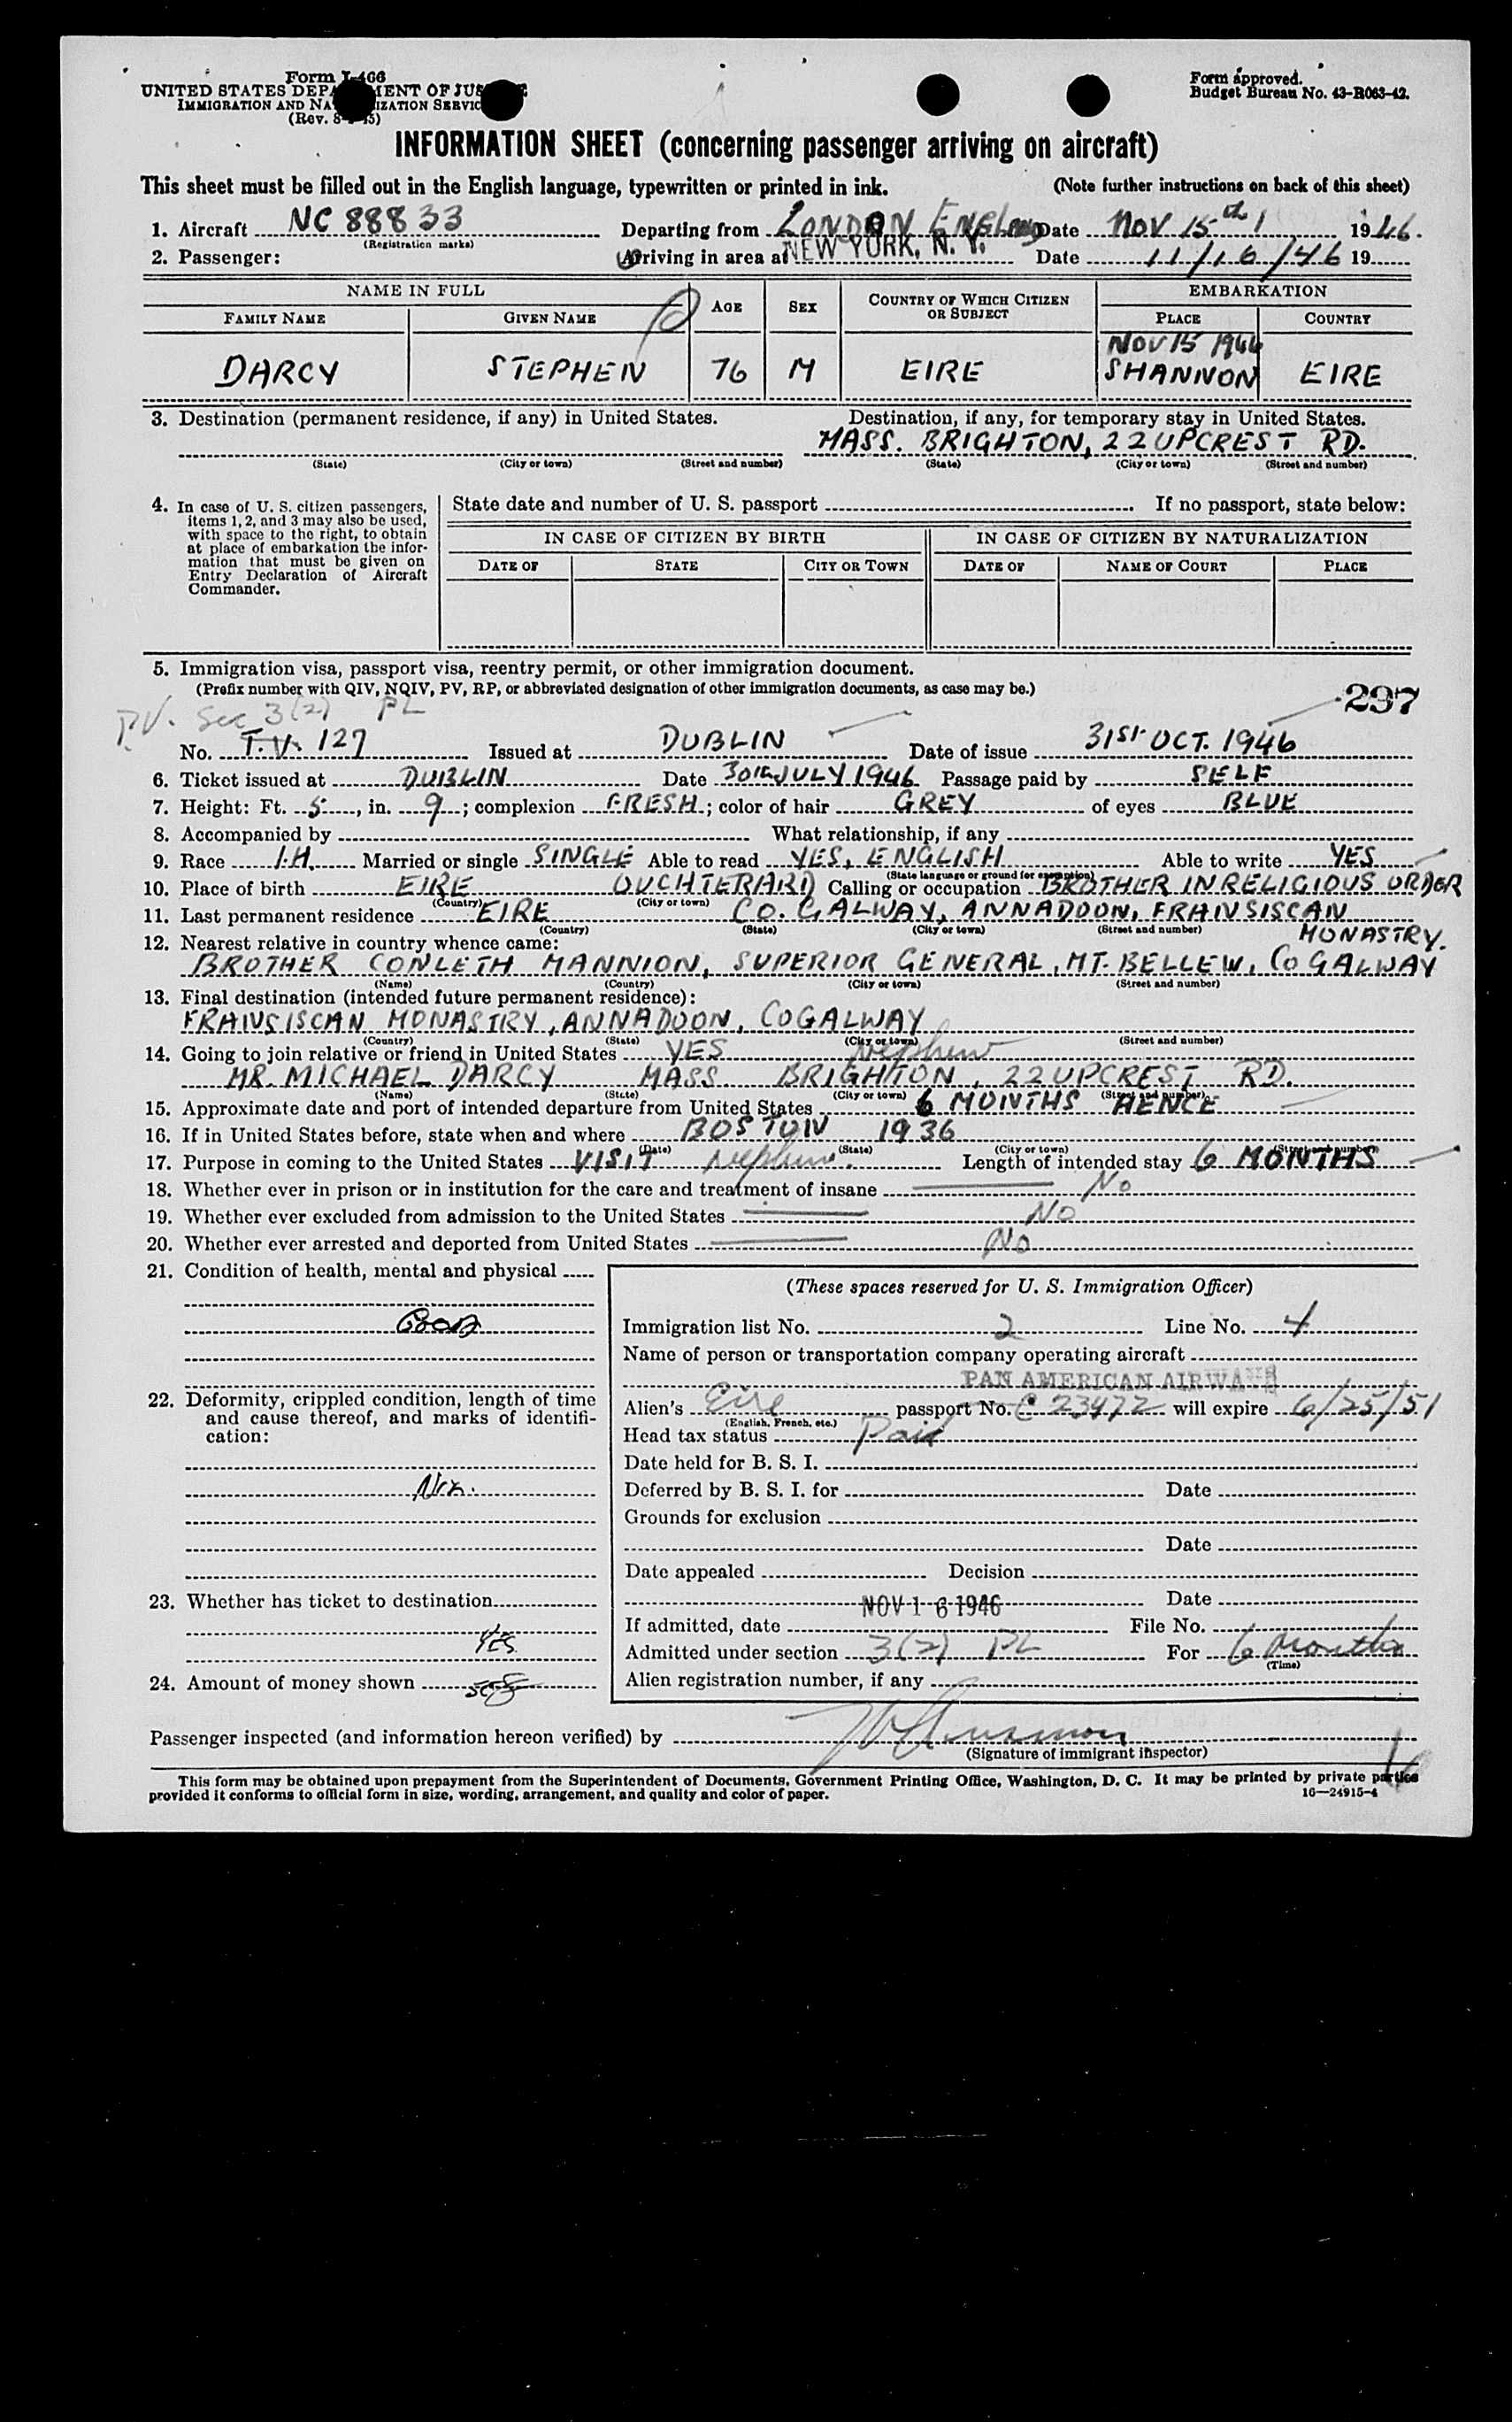 Form I-466
UNITED STATES DEPARTMENT OF JUSTICE
IMMIGRATION AND NATURALIZATION SERVICE
(Rev. 8-1-45)
Form approved.
Budget Bureau No. 43-R063-42.
INFORMATION SHEET (concerning passenger arriving on aircraft)
This sheet must be filled out in the English language, typewritten or printed in ink. (Note further instructions on back of this sheet)
1. Aircraft NC 88833 Departing from LONDON ENGLAND Date NOV 15th 1946.
(Registration marks)
2. Passenger: Arriving in area at NEW YORK, N. Y. Date 11/16/46 19
NAME IN FULL AGE SEX COUNTRY OF WHICH CITIZEN OR SUBJECT EMBARKATION
FAMILY NAME GIVEN NAME PLACE COUNTRY
NOV 15 1946
DARCY STEPHEN 76 M EIRE SHANNON EIRE
3. Destination (permanent residence, if any) in United States. Destination, if any, for temporary stay in United States.
MASS. BRIGHTON, 22 UPCREST RD.
(State) (City or town) (Street and number) (State) (City or town) (Street and number)
4. In case of U. S. citizen passengers, items 1, 2, and 3 may also be used, with space to the right, to obtain at place of embarkation the information that must be given on Entry Declaration of Aircraft Commander.
State date and number of U. S. passport . If no passport, state below:
IN CASE OF CITIZEN BY BIRTH IN CASE OF CITIZEN BY NATURALIZATION
DATE OF STATE CITY OR TOWN DATE OF NAME OF COURT PLACE
5. Immigration visa, passport visa, reentry permit, or other immigration document.
(Prefix number with QIV, NQIV, PV, RP, or abbreviated designation of other immigration documents, as case may be.)
297
P.V. Sec 3(2) PL
No. T.V. 127 Issued at DUBLIN Date of issue 31st OCT. 1946
6. Ticket issued at DUBLIN Date 30th JULY 1946 Passage paid by SELF
7. Height: Ft. 5, in. 9; complexion FRESH; color of hair GREY of eyes BLUE
8. Accompanied by What relationship, if any
9. Race I.H. Married or single SINGLE Able to read YES, ENGLISH Able to write YES
(State language or ground for exemption)
10. Place of birth EIRE OUCHTERARD Calling or occupation BROTHER IN RELIGIOUS ORDER
(Country) (City or town)
11. Last permanent residence EIRE CO. GALWAY, ANNADOON, FRANSISCAN
(Country) (State) (City or town) (Street and number)
MONASTRY.
12. Nearest relative in country whence came:
BROTHER CONLETH MANNION, SUPERIOR GENERAL, MT. BELLEW, CO GALWAY
(Name) (Country) (City or town) (Street and number)
13. Final destination (intended future permanent residence):
FRANSISCAN MONASTRY, ANNADOON, CO GALWAY
(Country) (State) (City or town) (Street and number)
14. Going to join relative or friend in United States YES Nephew
MR. MICHAEL DARCY MASS BRIGHTON, 22 UPCREST RD.
(Name) (State) (City or town) (Street and number)
15. Approximate date and port of intended departure from United States 6 MONTHS HENCE
16. If in United States before, state when and where BOSTON 1936
(Date) (State) (City or town) (Street and number)
17. Purpose in coming to the United States VISIT Nephew. Length of intended stay 6 MONTHS
18. Whether ever in prison or in institution for the care and treatment of insane No
19. Whether ever excluded from admission to the United States No
20. Whether ever arrested and deported from United States No
21. Condition of health, mental and physical
Good
22. Deformity, crippled condition, length of time and cause thereof, and marks of identification:
23. Whether has ticket to destination
YES
24. Amount of money shown
(These spaces reserved for U. S. Immigration Officer)
Immigration list No. 2 Line No. 4
Name of person or transportation company operating aircraft
PAN AMERICAN AIRWAYS
Alien's Eire passport No. C 23472 will expire 6/25/51
(English, French, etc.)
Head tax status Paid
Date held for B. S. I.
Deferred by B. S. I. for Date
Grounds for exclusion
Date
Date appealed Decision
Date
NOV 16 1946
If admitted, date File No.
Admitted under section 3(2) PL For 6 months
(Time)
Alien registration number, if any
Passenger inspected (and information hereon verified) by
(Signature of immigrant inspector)
This form may be obtained upon prepayment from the Superintendent of Documents, Government Printing Office, Washington, D. C. It may be printed by private parties
provided it conforms to official form in size, wording, arrangement, and quality and color of paper. 16—24915-4